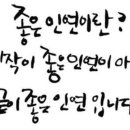 좋은 인연이란?
시작이 좋은 인연이 아
끝이 좋은 인연입니다